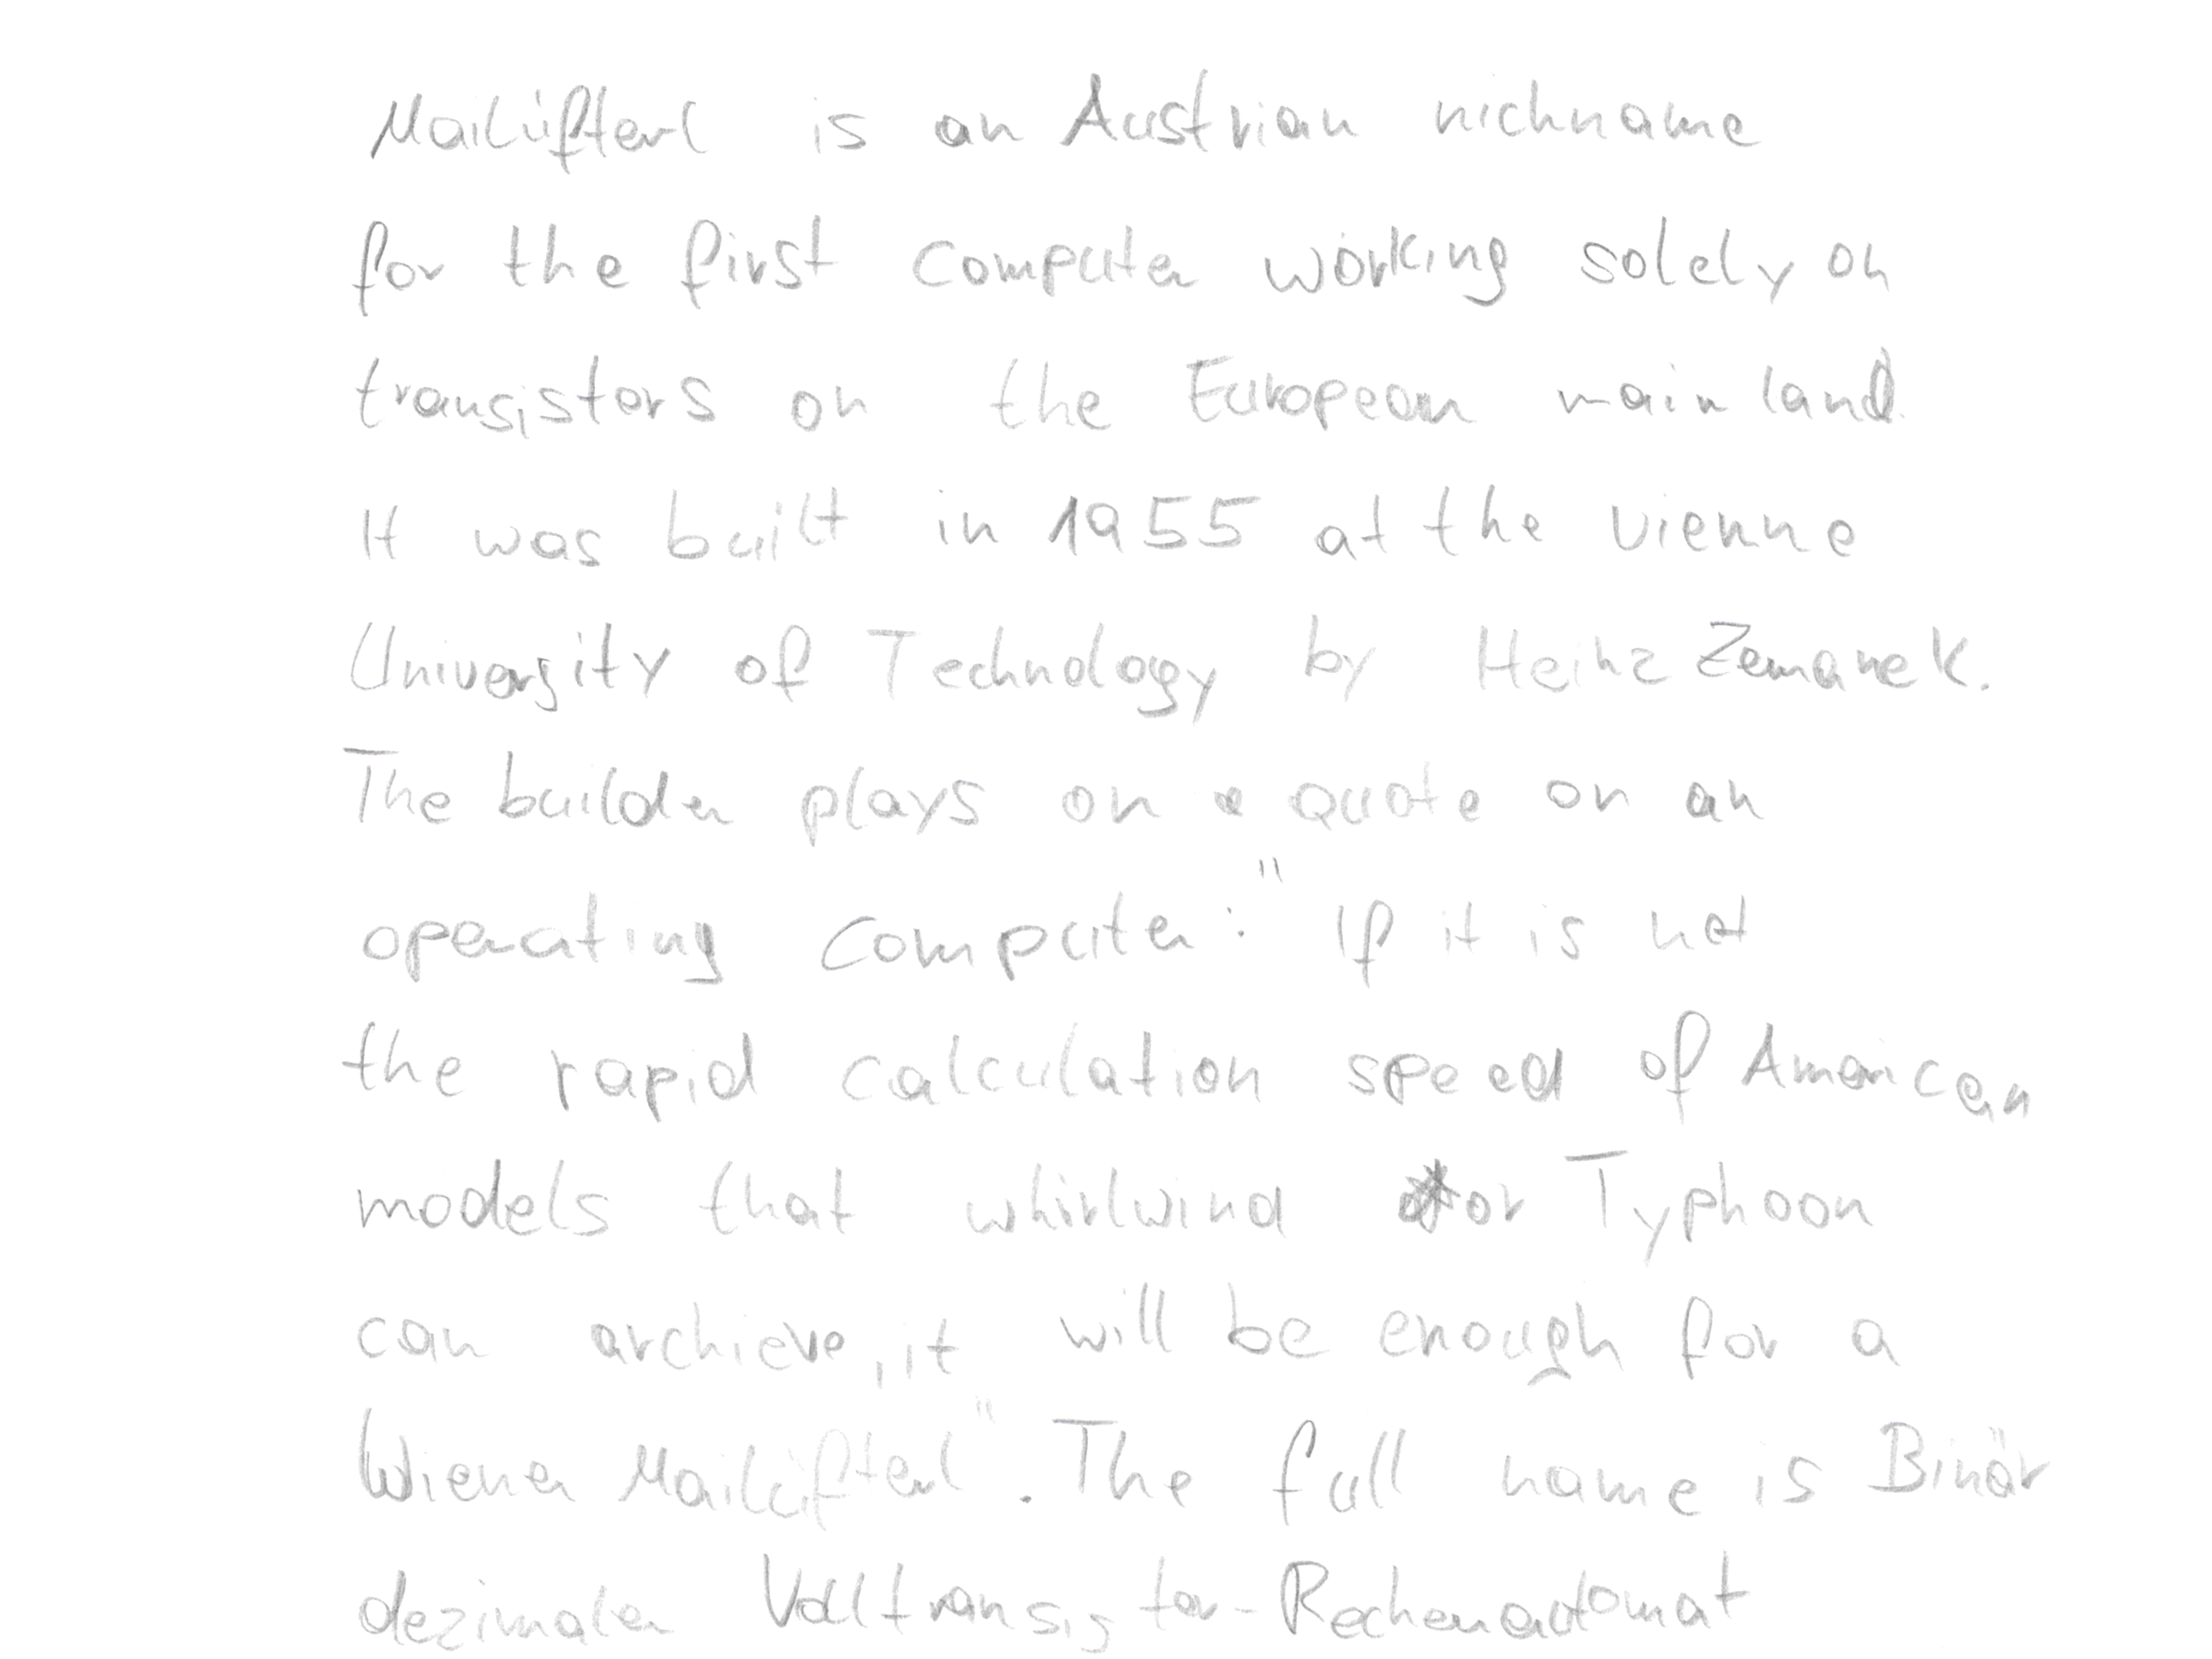 Mailüfterl is an Austrian nichname
for the first computer working solely on
transistors on the European mainland.
It was built in 1955 at the Vienne
University of Technology by Heinz Zemanek.
The builder plays on a quote on an
operating computer: "If it is not
the rapid calculation speed of American
models that whirlwind or Typhoon
can archieve, it will be enough for a
Wiener Mailüfterl". The full name is Binär
dezimaler Volltransistor-Rechenautomat